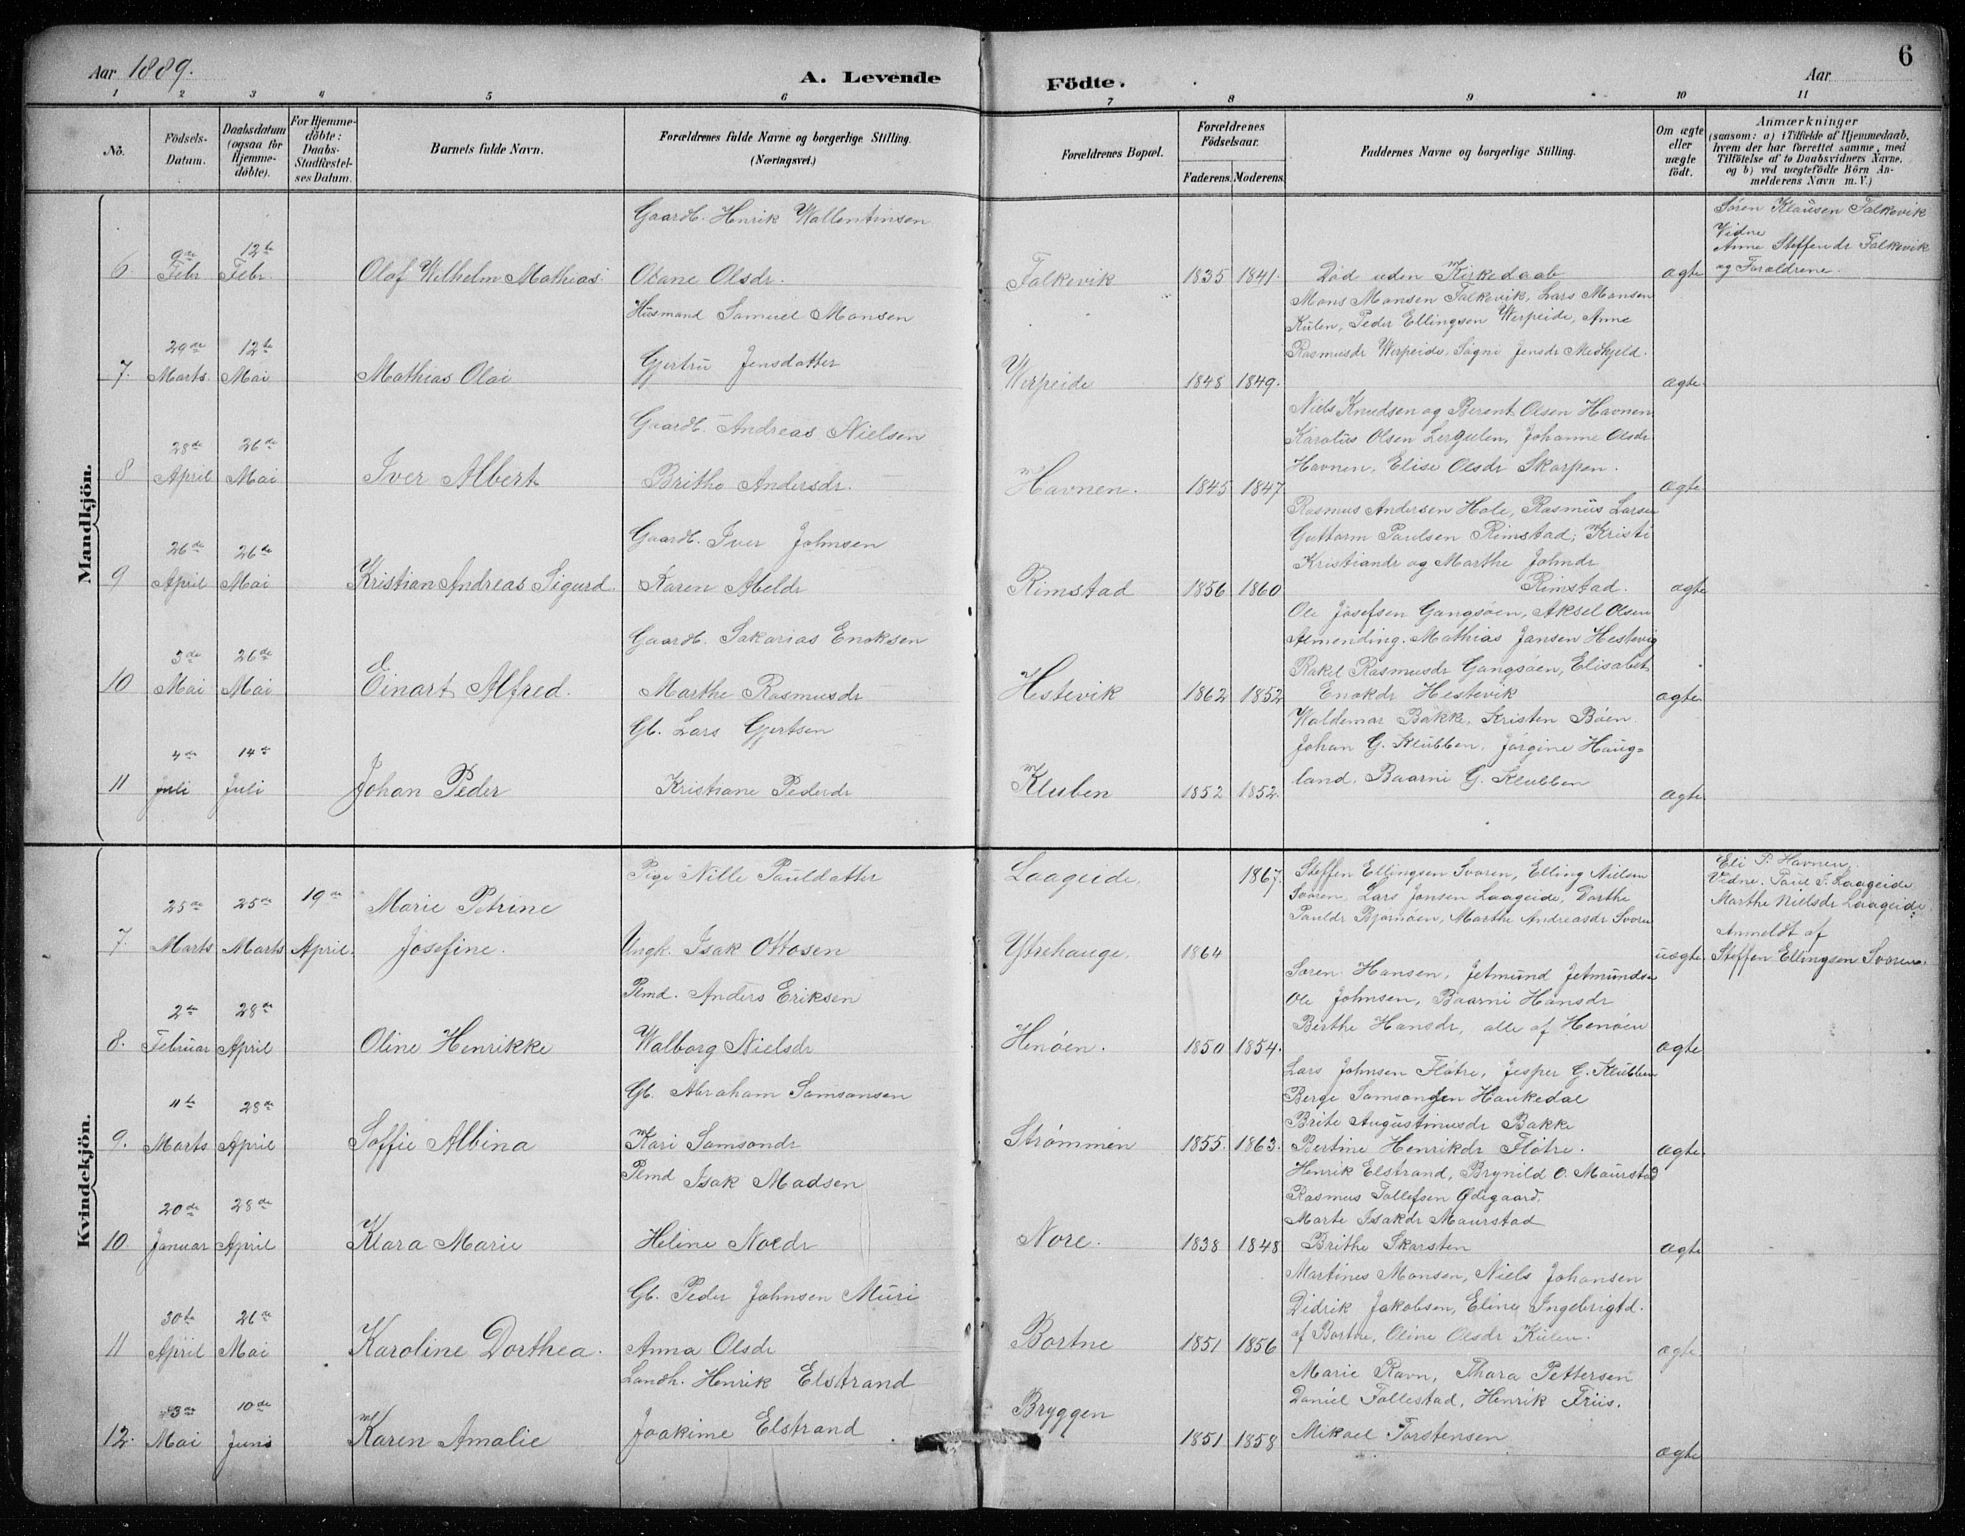 Aar 1889.
A. Levende Födte.
Aar
6
1 2 3 4 5 6 7 8 9 10 11
No.
Födsels-Datum.
Daabsdatum (ogsaa for Hjemmedöbte).
For Hjemmedöbte: Daabs-Stadfæstelses Datum.
Barnets fulde Navn.
Forældrenes fulde Navne og borgerlige Stilling. (Næringsvei.)
Forældrenes Bopæl.
Forældrenes Födselsaar.
Faderens. Moderens.
Faddernes Navne og borgerlige Stilling.
Om ægte eller uægte födt.
Anmærkninger
(saasom: a) i Tilfælde af Hjemmedaab, hvem der har forrettet samme, med Tilföielse af to Daabsvidners Navne, og b) ved uægtefödte Börn Anmelderens Navn m. V.)
Mandkjön.
6 9de Febr 12te Febr. Olaf Wilhelm Mathias
Gaardb. Henrik Wallentinsen
Oline Olsdr.
Falkevik 1835 1841.
Död uden Kirkedaab
ægte
Sören Klausen Falkevik
Vidne
Anne Steffendr Falkevik
og Forældrene.
7. 29de Marts. 12te Mai Mathias Olai
Husmand Samuel Monsen
Gjertru Jensdatter
Werpeide 1848 1849.
Mons Monsen Falkevik, Lars Monsen
Kulen, Peder Ellingsen Werpeide, Anne
Rasmusdr Werpeide, Sögni Jensdr Medhjeld.
ægte
8 28de April 26de Mai Iver Albert
Gaardb. Andreas Nielsen
Brithe Andersdr.
Havnen. 1845 1847
Niels Knudsen og Berent Olsen Havnen
Karolus Olsen Lergulen, Johanne Olsdr
Havnen, Elise Olsdr Skarpen.
ægte
9 26de April 26de Mai Kristian Andreas Sigurd.
Gaardb. Iver Johnsen
Karen Abeldr
Rimstad 1856 1860
Rasmus Andersen Hole, Rasmus Larsen
Guttorm Paulsen Rimstad, Kristi
Kristiandr og Marthe Johndr
Rimstad.
ægte
10 3de Mai 26de Mai Einart Alfred.
Gaardb. Sakarias Enoksen
Marthe Rasmusdr
Hestevik 1862 1852
Ole Josefsen Gangsöen, Aksel Olsen
Almending. Mathias Jansen Hestevig
Rakel Rasmusdr Gangsöen, Elisabet
Enokdr Hestevik
ægte
11 4de Juli 14de Juli Johan Peder
Gb. Lars Gjertsen
Kristiane Pederdr
Kluben 1852 1852.
Waldemar Bakke, Kristen Böen
Johan G. Klubben, Jörgine Haug-
land. Baarni G. Klubben
ægte
Kvindekjön.
7. 25de Marts 25de Marts 19de April. Marie Petrine
Josefine.
Pige Nille Pauldatter
Ungk. Isak Ottosen
Laageide 1867.
Ytrehauge. 1864
Steffen Ellingsen Svoren, Elling Nielsen
Svoren, Lars Jensen Laageide, Dorthe
Pauldr Bjørnøen, Marthe Andreasdr Svoren
uægte
Eli P. Havnen.
Vidne. Paul J. Laageide
Marthe Nielsdr Laageide
Anmeldt af
Steffen Ellingsen Svoren.
8. 2de Februar 28de April Oline Henrikke
Plmd. Anders Eriksen
Walborg Nielsdr
Henöen. 1850 1854.
Sören Hansen, Jetmund Jetmundsen
Ole Johnsen, Baarni Hansdr
Berthe Hansdr, alle af Henöen
ægte
9. 11te Marts 28de April Soffie Albina
Gb. Abraham Samsonsen
Kari Samsondr
Strømmen 1855. 1863.
Lars Johnsen Flötre, Jesper G. Klubben
Berge Samsonsen Haukedal
Brite Augustinusdr Bakke
Bertine Henrikdr Flötre.
ægte
10. 20de Januar 28de April Klara Marie
Plmd Isak Madsen
Heline Noedr
Nore. 1838 1848
Henrik Elstrand, Brynild O. Maurstad
Rasmus Tollefsen Ødegaard,
Marte Isakdr Maurstad
Brithe Skarsten
ægte
11 30te April 26de Mai Karoline Dorthea.
Gb. Peder Johnsen Muri
Anna Olsdr
Bortne 1851 1856
Martines Monsen, Niels Johansen
Didrik Jakobsen, Eline Ingebrigtd.
af Bortne, Oline Olsdr Kulen.
ægte
12. 3de Mai 10de Juni Karen Amalie
Landh. Henrik Elstrand
Joakime Elstrand
Bryggen 1851 1858
Marie Ravn, Thora Pettersen
Daniel Follestad, Henrik Friis.
Mikael Torstensen
ægte